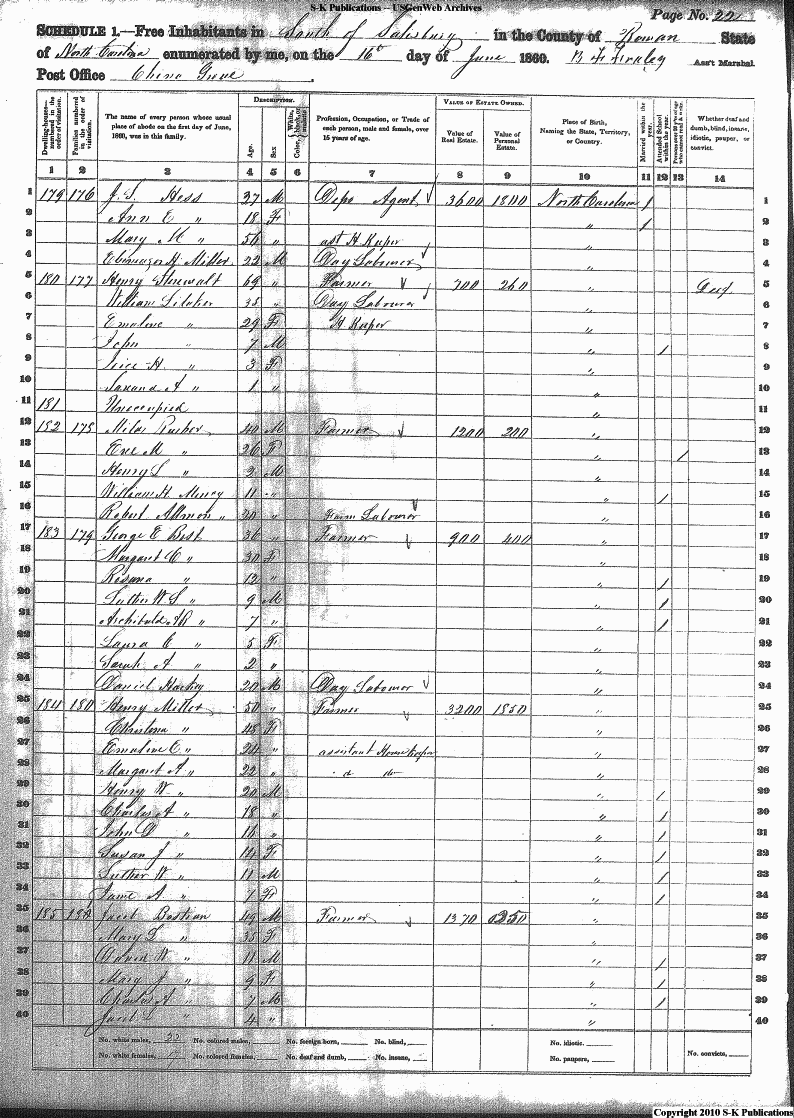 S-K Publications -- USGenWeb Archives
Page No. 22
SCHEDULE 1.—Free Inhabitants in South of Salisbury in the County of Rowan State
of North Carolina enumerated by me, on the 16th day of June 1860. Ass't Marshal.
Post Office China Grove
Dwelling-houses—numbered in the order of visitation.
Families numbered in the order of visitation.
The name of every person whose usual place of abode on the first day of June, 1860, was in this family.
DESCRIPTION.
Age.
Sex
White, black, or mulatto
Color,
Profession, Occupation, or Trade of each person, male and female, over 15 years of age.
VALUE OF ESTATE OWNED.
Value of Real Estate.
Value of Personal Estate.
Place of Birth, Naming the State, Territory, or Country.
Married within the year.
Attended School within the year.
Persons over 20 y'rs of age who cannot read & write.
Whether deaf and dumb, blind, insane, idiotic, pauper, or convict.
1 2 3 4 5 6 7 8 9 10 11 12 13 14
1 179 176 J. S. Hess 27 M Depo Agent 3600 1800 North Carolina / 1
2 Ann E " 18 F " / 2
3 Mary M " 56 " H Keeper " 3
4 Ebenezer H Miller 22 M Day Labourer " 4
5 180 177 Henry 69 " Farmer 700 260 " Deef 5
6 William 35 " Day Labourer " 6
7 Emaline " 29 F H Keeper " 7
8 John " 7 M " / 8
9 " 3 F " 9
10 A " 1 " " 10
11 181 Unoccupied 11
12 182 178 Milas 40 M Farmer 1200 200 " 12
13 Eve M " 26 F " / 13
14 Henry L " 2 M " 14
15 William H. 11 " " / 15
16 Robert 20 " Farm Labourer " 16
17 183 179 George E Bost 36 " Farmer 900 400 " 17
18 Margaret C " 30 F " 18
19 Rosana " 12 " " / 19
20 Luther W. S " 9 M " / 20
21 Archibald " 7 " " / 21
22 Laura C " 5 F " 22
23 Sarah A " 2 " " 23
24 Daniel 20 M Day Labourer " 24
25 184 180 Henry Miller 50 " Farmer 3200 1850 " 25
26 " 45 F " 26
27 Emaline E " 24 " assistant Housekeeper " 27
28 Margaret A " 22 " " 28
29 Henry W " 20 M " / 29
30 Charles A " 18 " " / 30
31 John D " 16 " " / 31
32 Susan J " 14 F " / 32
33 Luther W " 11 M " / 33
34 Jane A " 7 F " / 34
35 185 Jacob Bostian 49 M Farmer 1370 " 35
36 Mary L " 35 F " 36
37 David W " 11 M " / 37
38 Mary J " 9 F " / 38
39 Charles A " 7 M " / 39
40 Jacob L " 4 " " 40
No. white males, No. colored males, No. foreign born, No. blind, No. idiotic.
No. white females, No. colored females, No. deaf and dumb, No. insane, No. paupers, No. convicts,
Copyright 2010 S-K Publications